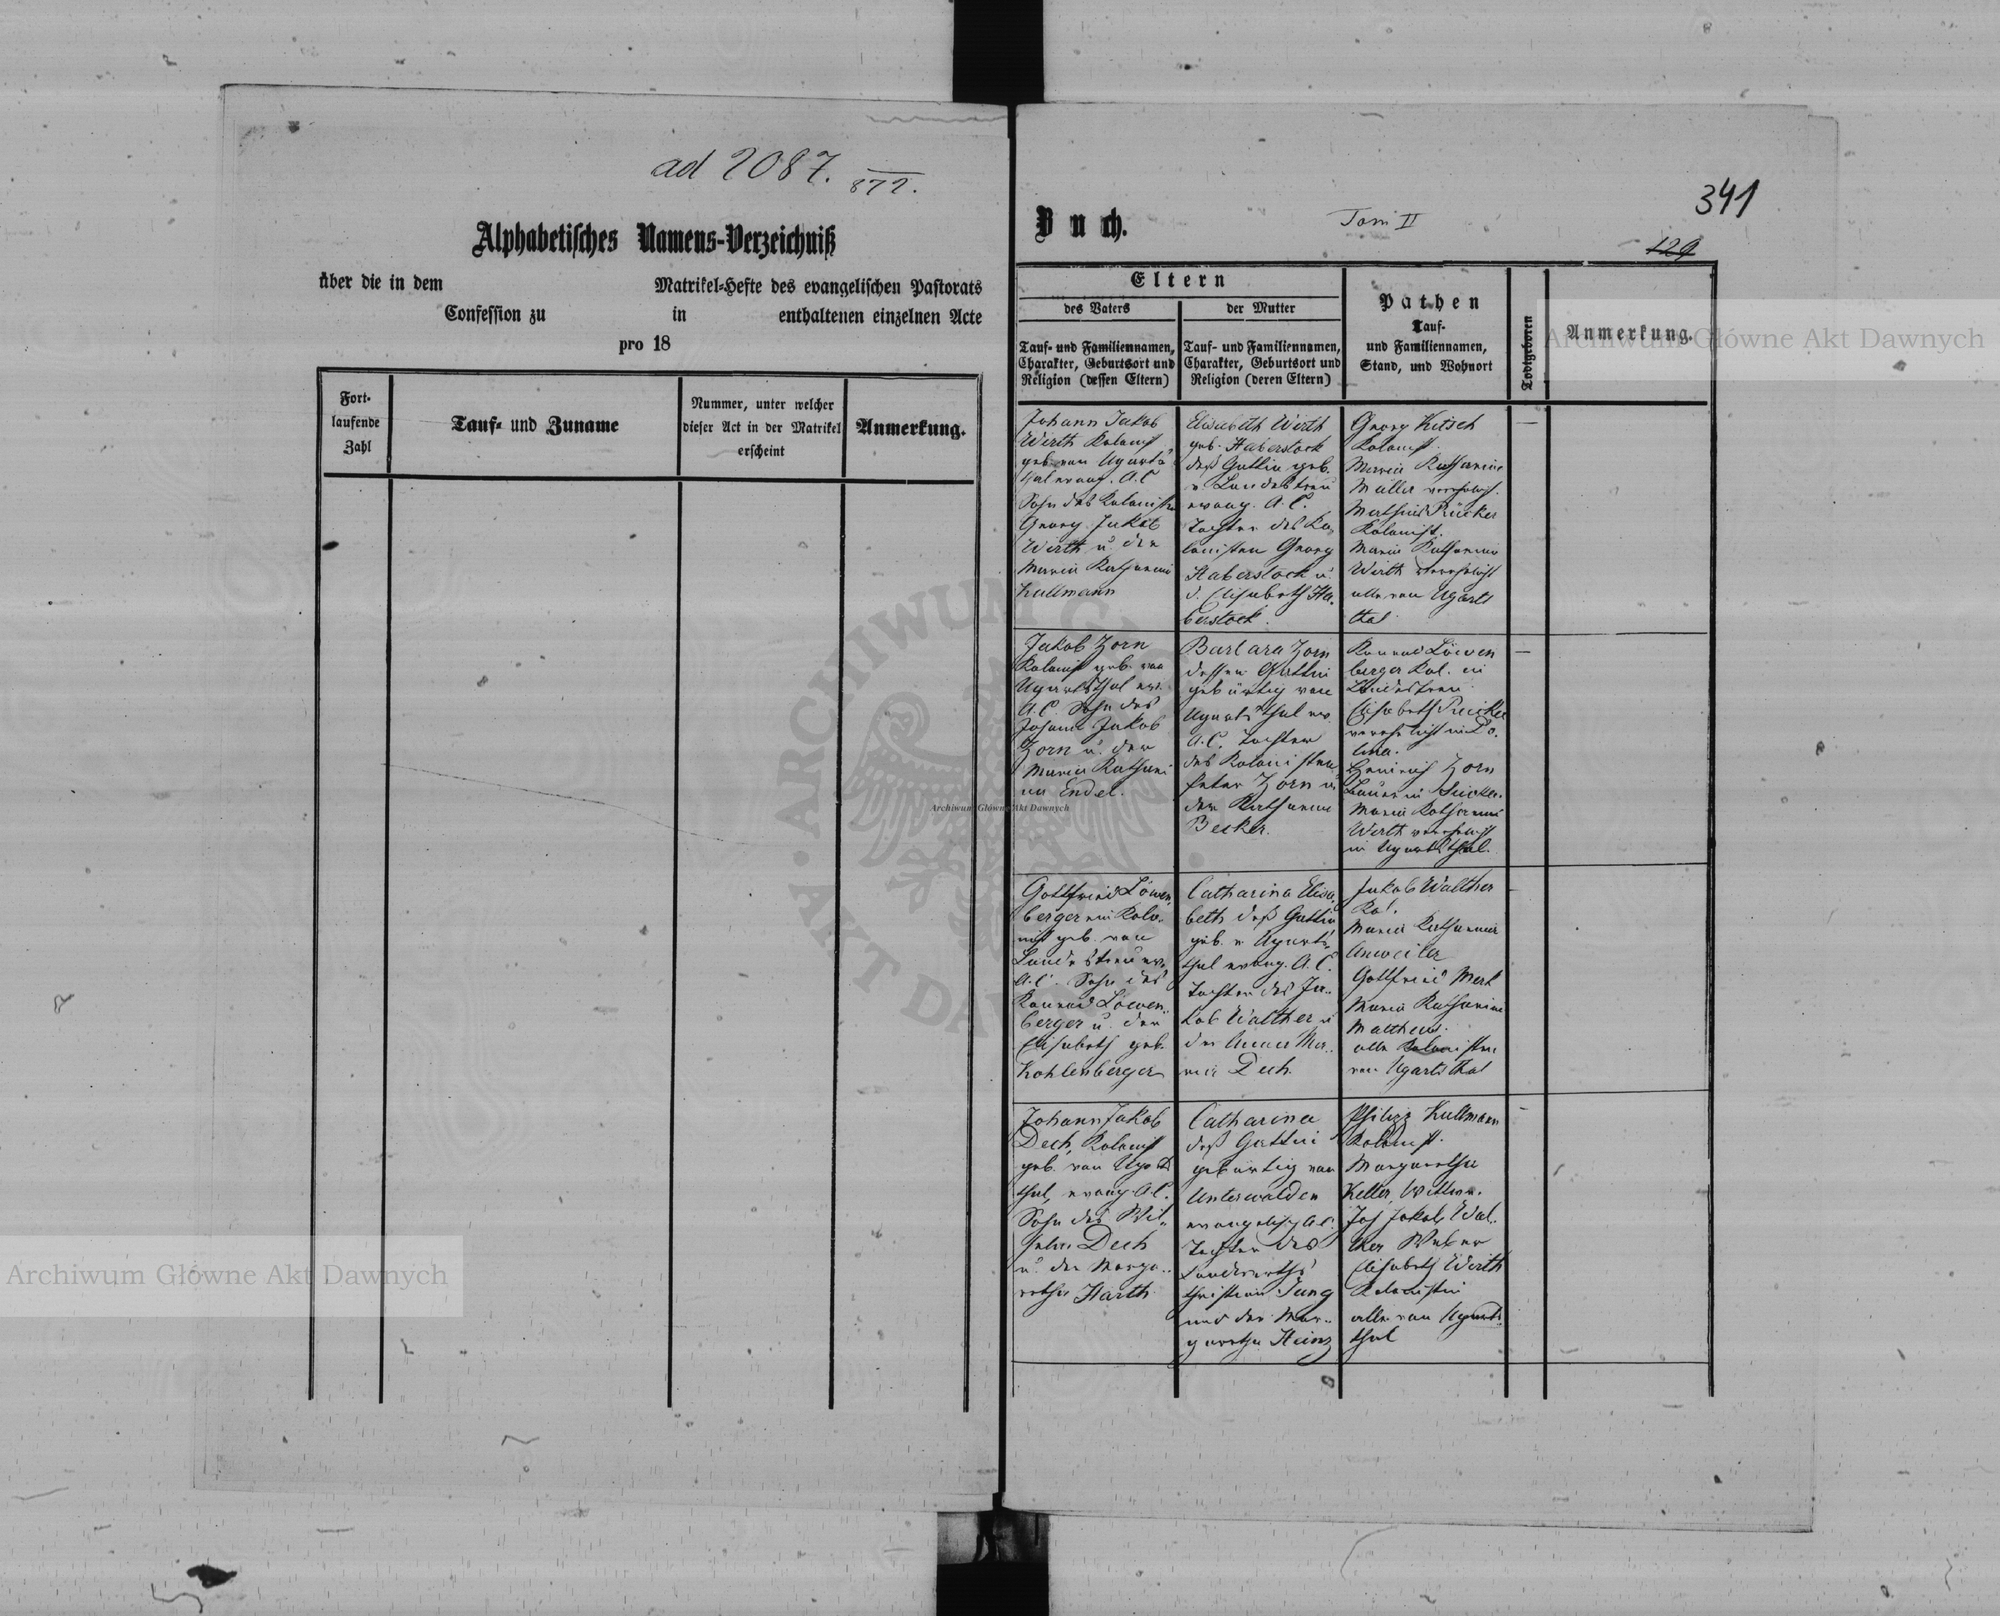 ad 2087.
872.
Alphabetisches Namens-Verzeichniß
über die in dem Matrikel-Hefte des evangelischen Pastorats
Confession zu in enthaltenen einzelnen Acte
pro 18
Fort-
laufende
Zahl
Tauf- und Zuname
Nummer, unter welcher
dieser Act in der Matrikel
erscheint
Anmerkung.
341
Buch.
Tom II
129
Eltern
des Vaters
Tauf- und Familiennamen,
Charakter, Geburtsort und
Religion (dessen Eltern)
der Mutter
Tauf- und Familiennamen,
Charakter, Geburtsort und
Religion (deren Eltern)
Pathen
Tauf-
und Familiennamen,
Stand, und Wohnort
Todtgeboren
Anmerkung.
Johann Jakob
Wirth Kolonist
geb. von Ugarts
thal evang. A.C.
Sohn des Kolonisten
Georg Jakob
Wirth u. der
Maria Katharina
Kullmann
Elisabeth Wirth
geb. Haberstock
deß Gattin geb.
v Landestreu
evang. A.C.
Tochter des Ko
lonisten Georg
Haberstock u.
d. Elisabeth Ha
berstock.
Georg Kitsch
Kolonist.
Maria Katharina
Müller verehelicht.
Mathias Rücker
Kolonist.
Maria Katharina
Wirth verehelicht
alle von Ugarts
thal
Jakob Zorn
Kolonist geb. von
Ugartsthal ev.
A.C. Sohn des
Johann Jakob
Zorn u. der
Maria Kathari
na Endel.
Barbara Zorn
dessen Gattin
gebürtig von
Ugartsthal ev.
A.C. Tochter
des Kolonisten
Peter Zorn u
der Katharina
Becker.
Konrad Löwen
berger Kol. in
Landestreu
Elisabeth
verehelicht in Do
lina.
Heinrich Zorn
Maria Katharina
Wirth verehelicht
in Ugartsthal.
Gottfried Löwen
berger ein Kolo-
nist geb. von
Landestreu ev.
A.C. Sohn des
Konrad Löwen
berger u. der
Elisabeth geb.
Kohlenberger
Catharina Elisa
beth deß Gattin
geb. v Ugarts
thal evang. A.C.
Tochter des Ja
kob Walther u
der Anna Ma
ria Dech.
Jakob Walther
Kol.
Maria Katharina
Anweiler
Gottfried Merk
Maria Katharina
Mattheis.
alle Kolonisten
von Ugartsthal
Johann Jakob
Dech, Kolonist
geb. von Ugarts
thal, evang. A.C.
Sohn des Wil
helm Dech
u. der Marga
retha Harth
Catharina
deß Gattin
gebürtig von
Unterwalden
evangelisch A.C.
Tochter des
Landwirths
Christian Jung
und der Mar
garetha Heinz
Philipp Kullmann
Kolonist.
Margaretha
Keller, Wittwe.
Joh Jakob Wal
ther Weber
Elisabeth Wirth
Kolonistin
alle von Ugarts
thal
Archiwum Główne Akt Dawnych
Archiwum Główne Akt Dawnych
Archiwum Główne Akt Dawnych
ARCHIWUM GŁÓWNE AKT DAWNYCH